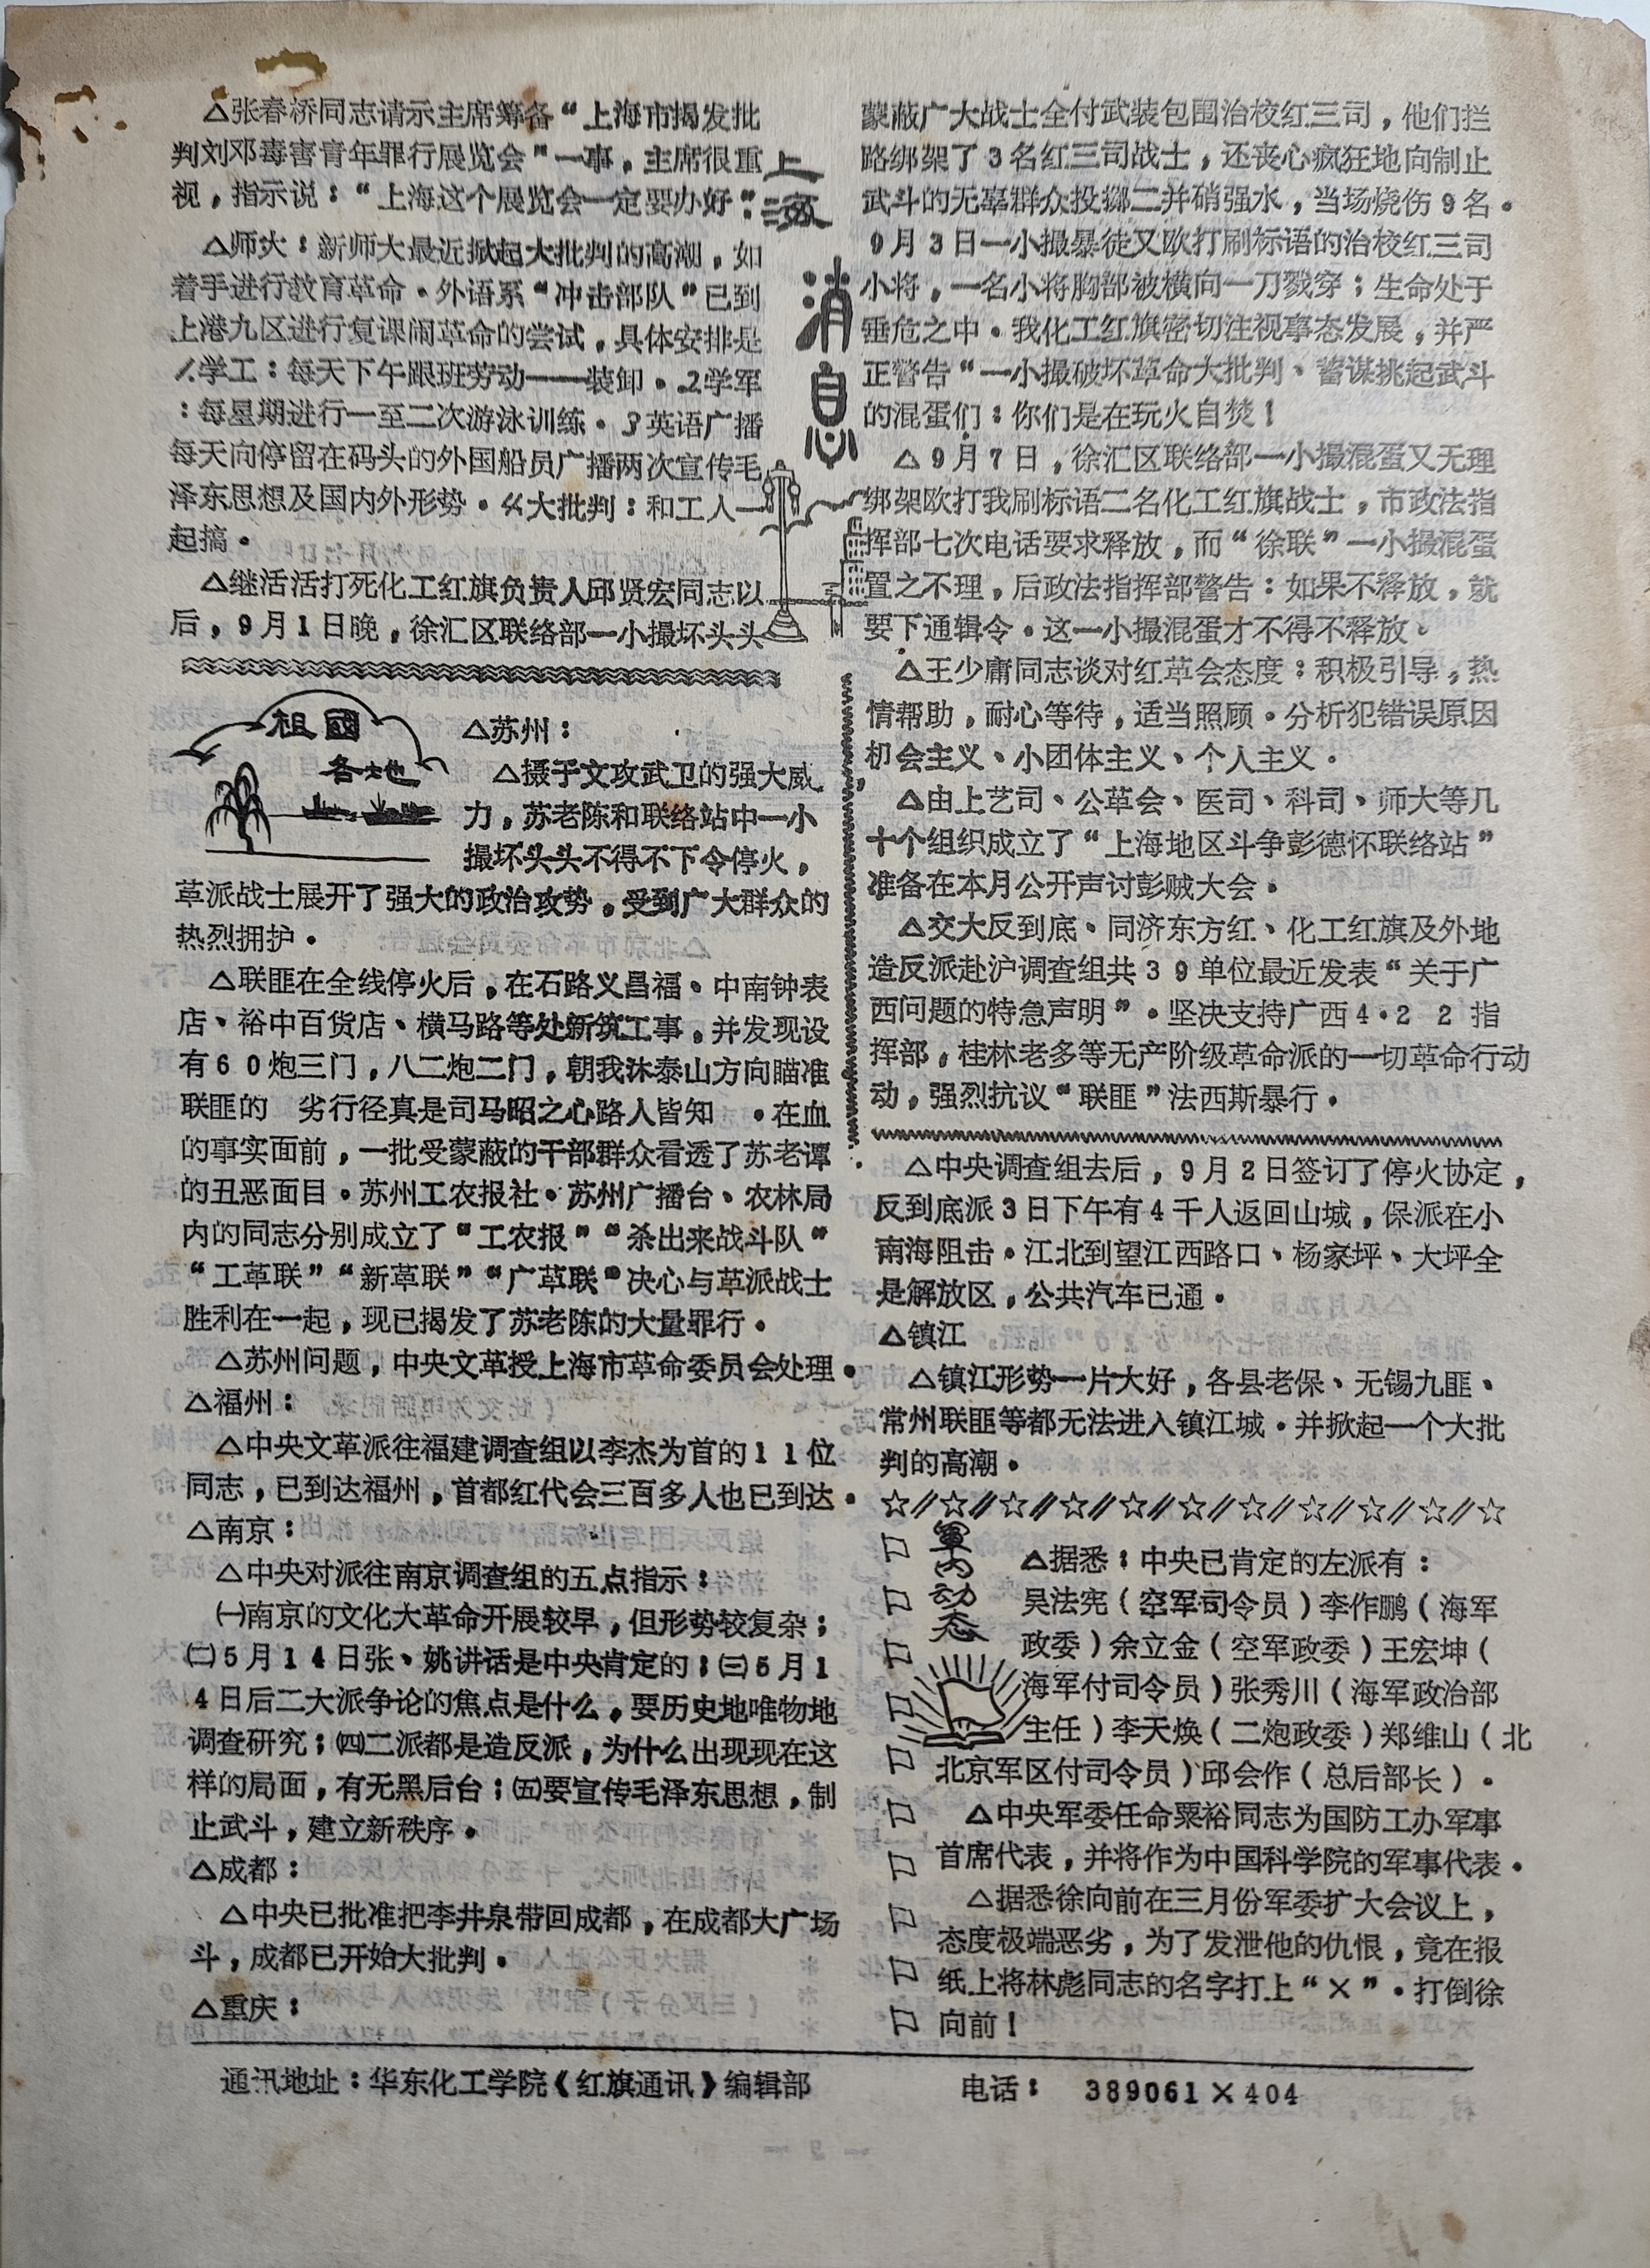 △张春桥同志请示主席筹备“上海市揭发批
判刘邓毒害青年罪行展览会”一事，主席很重
视，指示说：“上海这个展览会一定要办好”：
△师大：新师大最近掀起大批判的高潮，如
着手进行教育革命·外语系“冲击部队”已到
上港九区进行复课闹革命的尝试，具体安排是
1.学工：每天下午跟班劳动——装卸·2学军
：每星期进行一至二次游泳训练·3英语广播
每天向停留在码头的外国船员广播两次宣传毛
泽东思想及国内外形势·4大批判：和工人一
起搞·
△继活活打死化工红旗负责人邱贤宏同志以
后，9月1日晚，徐汇区联络部一小撮坏头头
上海
消息
蒙蔽广大战士全付武装包围治校红三司，他们拦
路绑架了3名红三司战士，还丧心疯狂地向制止
武斗的无辜群众投掷二并硝强水，当场烧伤9名·
9月3日一小撮暴徒又欧打刷标语的治校红三司
小将，一名小将胸部被横向一刀戮穿；生命处于
垂危之中·我化工红旗密切注视事态发展，并严
正警告“一小撮破坏革命大批判、蓄谋挑起武斗
的混蛋们：你们是在玩火自焚！
△9月7日，徐汇区联络部一小撮混蛋又无理
绑架欧打我刷标语二名化工红旗战士，市政法指
挥部七次电话要求释放，而“徐联”一小撮混蛋
置之不理，后政法指挥部警告：如果不释放，就
要下通辑令·这一小撮混蛋才不得不释放·
△王少庸同志谈对红革会态度：积极引导，热
情帮助，耐心等待，适当照顾·分析犯错误原因
机会主义、小团体主义、个人主义·
△由上艺司、公革会、医司、科司、师大等几
十个组织成立了“上海地区斗争彭德怀联络站”
准备在本月公开声讨彭贼大会·
△交大反到底、同济东方红、化工红旗及外地
造反派赴沪调查组共39单位最近发表“关于广
西问题的特急声明”·坚决支持广西4·22指
挥部，桂林老多等无产阶级革命派的一切革命行动
动，强烈抗议“联匪”法西斯暴行·
祖國
各地
△苏州：
△摄于文攻武卫的强大威
力，苏老陈和联络站中一小
撮坏头头不得不下令停火，
革派战士展开了强大的政治攻势，受到广大群众的
热烈拥护·
△联匪在全线停火后，在石路义昌福、中南钟表
店、裕中百货店、横马路等处新筑工事，并发现设
有60炮三门，八二炮二门，朝我沐泰山方向瞄准
联匪的 劣行径真是司马昭之心路人皆知 ·在血
的事实面前，一批受蒙蔽的干部群众看透了苏老谭
的丑恶面目·苏州工农报社·苏州广播台、农林局
内的同志分别成立了“工农报”“杀出来战斗队”
“工革联”“新革联”“广革联”决心与革派战士
胜利在一起，现已揭发了苏老陈的大量罪行·
△苏州问题，中央文革授上海市革命委员会处理·
△福州：
△中央文革派往福建调查组以李杰为首的11位
同志，已到达福州，首都红代会三百多人也已到达·
△南京：
△中央对派往南京调查组的五点指示：
㈠南京的文化大革命开展较早，但形势较复杂；
㈡5月14日张、姚讲话是中央肯定的；㈢5月1
4日后二大派争论的焦点是什么，要历史地唯物地
调查研究；㈣二派都是造反派，为什么出现现在这
样的局面，有无黑后台；㈤要宣传毛泽东思想，制
止武斗，建立新秩序·
△成都：
△中央已批准把李井泉带回成都，在成都大广场
斗，成都已开始大批判·
△重庆：
△中央调查组去后，9月2日签订了停火协定，
反到底派3日下午有4千人返回山城，保派在小
南海阻击·江北到望江西路口、杨家坪、大坪全
是解放区，公共汽车已通·
△镇江
△镇江形势一片大好，各县老保、无锡九匪、
常州联匪等都无法进入镇江城·并掀起一个大批
判的高潮·
☆//☆//☆//☆//☆//☆//☆//☆//☆//☆//☆
軍内动态
△据悉：中央已肯定的左派有：
吴法宪（空军司令员）李作鹏（海军
政委）余立金（空军政委）王宏坤（
海军付司令员）张秀川（海军政治部
主任）李天焕（二炮政委）郑维山（北
北京军区付司令员）邱会作（总后部长）·
△中央军委任命粟裕同志为国防工办军事
首席代表，并将作为中国科学院的军事代表·
△据悉徐向前在三月份军委扩大会议上，
态度极端恶劣，为了发泄他的仇恨，竟在报
纸上将林彪同志的名字打上“×”·打倒徐
向前！
通讯地址：华东化工学院《红旗通讯》编辑部 电话： 389061×404